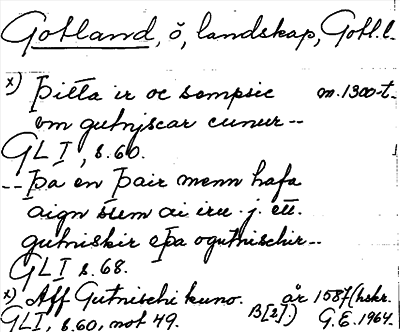 Gotland, ö, landskap, Gotl. l.
x) Þitta ir oc sempsic m. 1300-t.
om gutnjscar cunur --
GLI, s. 60.
-- Þa en Þair menn hafa
aign sem ai iru . j. ett.
gutniskir eþa ogutnischir --
GLI s. 68.
x) Aff Gutnischi kuno. år 1587 (hskr.
GLI, s. 60, not 49. B[2].) G.E. 1964.